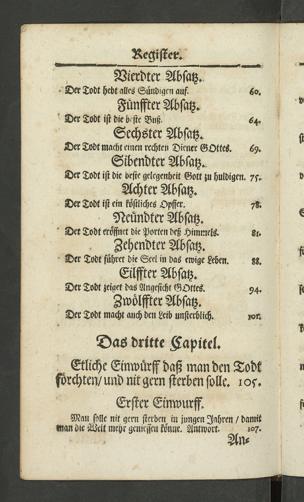 Register.
Vierdter Absatz.
Der Todt hebt alles Sündigen auf. 60.
Fünffter Absatz.
Der Todt ist die beste Buß. 64.
Sechster Absatz.
Der Todt macht einen rechten Diener GOttes. 69.
Sibendter Absatz.
Der Todt ist die beste gelegenheit Gott zu huldigen. 75.
Achter Absatz.
Der Todt ist ein köstliches Opffer. 78.
Neündter Absatz.
Der Todt eröffnet die Porten deß Himmels. 81.
Zehendter Absatz.
Der Todt führet die Seel in das ewige Leben. 88.
Eilffter Absatz.
Der Todt zeiget das Angesicht GOttes. 94.
Zwölffter Absatz.
Der Todt macht auch den Leib unsterblich. 101.
Das dritte Capitel.
Etliche Einwürff daß man den Todt
förchten/ und nit gern sterben solle. 105.
Erster Einwurff.
Man solle nit gern sterben in jungen Jahren / damit
man die Welt mehr geniessen könne. Antwort. 107.
An-